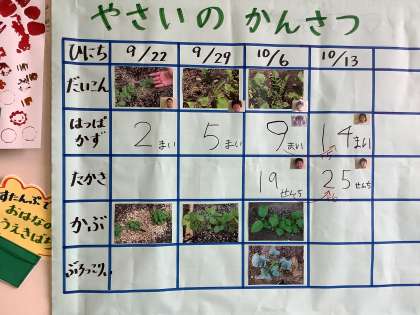 やさいの かんさつ
ひにち 9/22 9/29 10/6 10/13
だいこん
はっぱ かず 2まい 5まい 9まい 14まい
たかさ 19せんち 25せんち
かぶ
ぶろっこりー
すたんぷで
おはなの
うえきばち